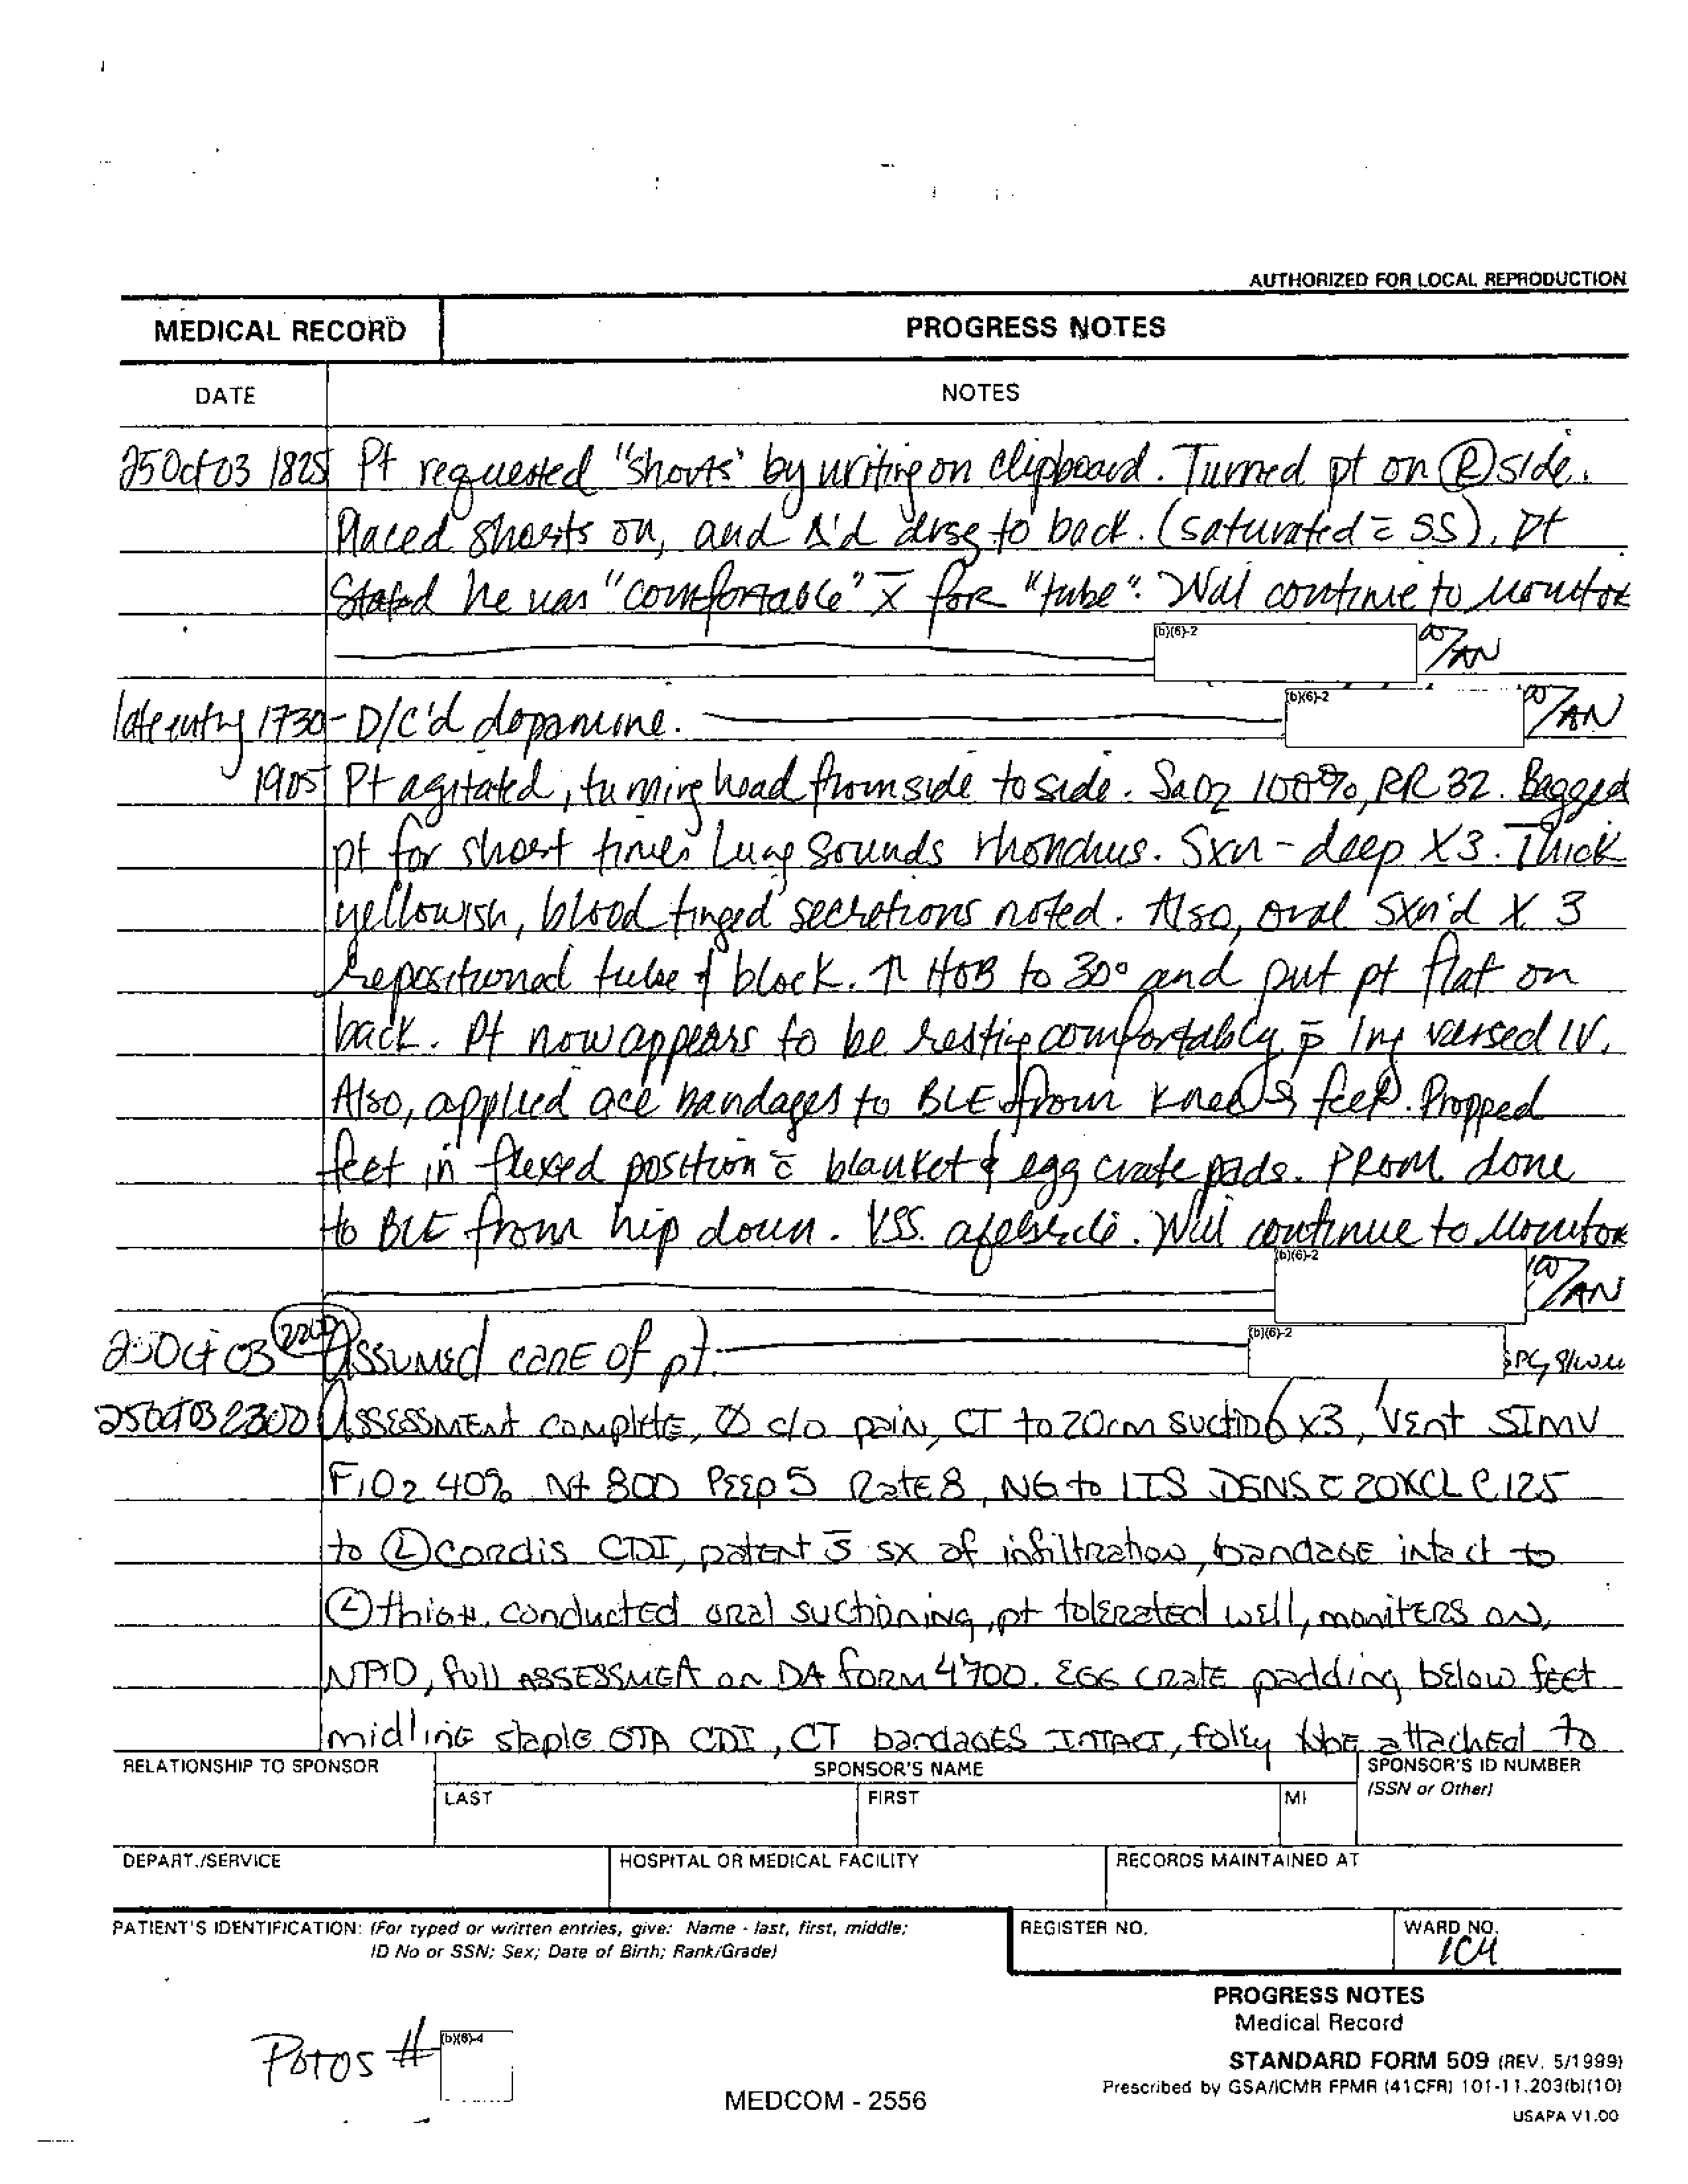 AUTHORIZED FOR LOCAL REPRODUCTION
MEDICAL RECORD PROGRESS NOTES
DATE NOTES
25Oct03 1825 Pt requested "shorts" by writing on clipboard. Turned pt on Ⓡ side.
Placed shorts on, and Δ'd drsg to back. (saturated c̄ SS). Pt
Stated he was "comfortable" x̄ for "tube". Will continue to monitor
(b)(6)-2 /AN
late entry 1730 - D/C'd dopamine. (b)(6)-2 /AN
1905 Pt agitated, turning head from side to side. SaO2 100%, RR 32. Bagged
pt for short times Lung sounds rhonchus. Sxn - deep X3. Thick
yellowish, blood tinged secretions noted. Also, oral sxn'd X 3
Repositioned tube & block. ↑ HOB to 30° and put pt flat on
back. Pt now appears to be resting comfortably p̄ 1mg versed IV.
Also, applied ace bandages to BLE from knees feet. Propped
feet in flexed position c̄ blanket & egg crate pads. PROM done
to BLE from hip down. VSS. afebrile. Will continue to monitor
(b)(6)-2 /AN
25Oct 03 2200 Assumed care of pt. (b)(6)-2 SPC,
25Oct03 2300 Assessment complete, Ø c/o pain, CT to 20cm suction x3, Vent SIMV
FiO2 40% 800 Peep 5 Rate 8, NG to LIS D5NS c̄ 20KCL @ 125
to Ⓛ cordis CDI, patent s̄ sx of infiltration, bandage intact to
Ⓛ thigh, conducted oral suctioning, pt tolerated well, moniters on,
NAD, full assessment on DA form 4700. Egg crate padding below feet
midline staple OTA CDI, CT bandages intact, foley tube attached to
RELATIONSHIP TO SPONSOR SPONSOR'S NAME SPONSOR'S ID NUMBER
LAST FIRST MI (SSN or Other)
DEPART./SERVICE HOSPITAL OR MEDICAL FACILITY RECORDS MAINTAINED AT
PATIENT'S IDENTIFICATION: (For typed or written entries, give: Name - last, first, middle; REGISTER NO. WARD NO.
ID No or SSN; Sex; Date of Birth; Rank/Grade) ICU
PROGRESS NOTES
Medical Record
STANDARD FORM 509 (REV. 5/1999)
Prescribed by GSA/ICMR FPMR (41CFR) 101-11.203(b)(10)
USAPA V1.00
# (b)(6)-4
MEDCOM - 2556